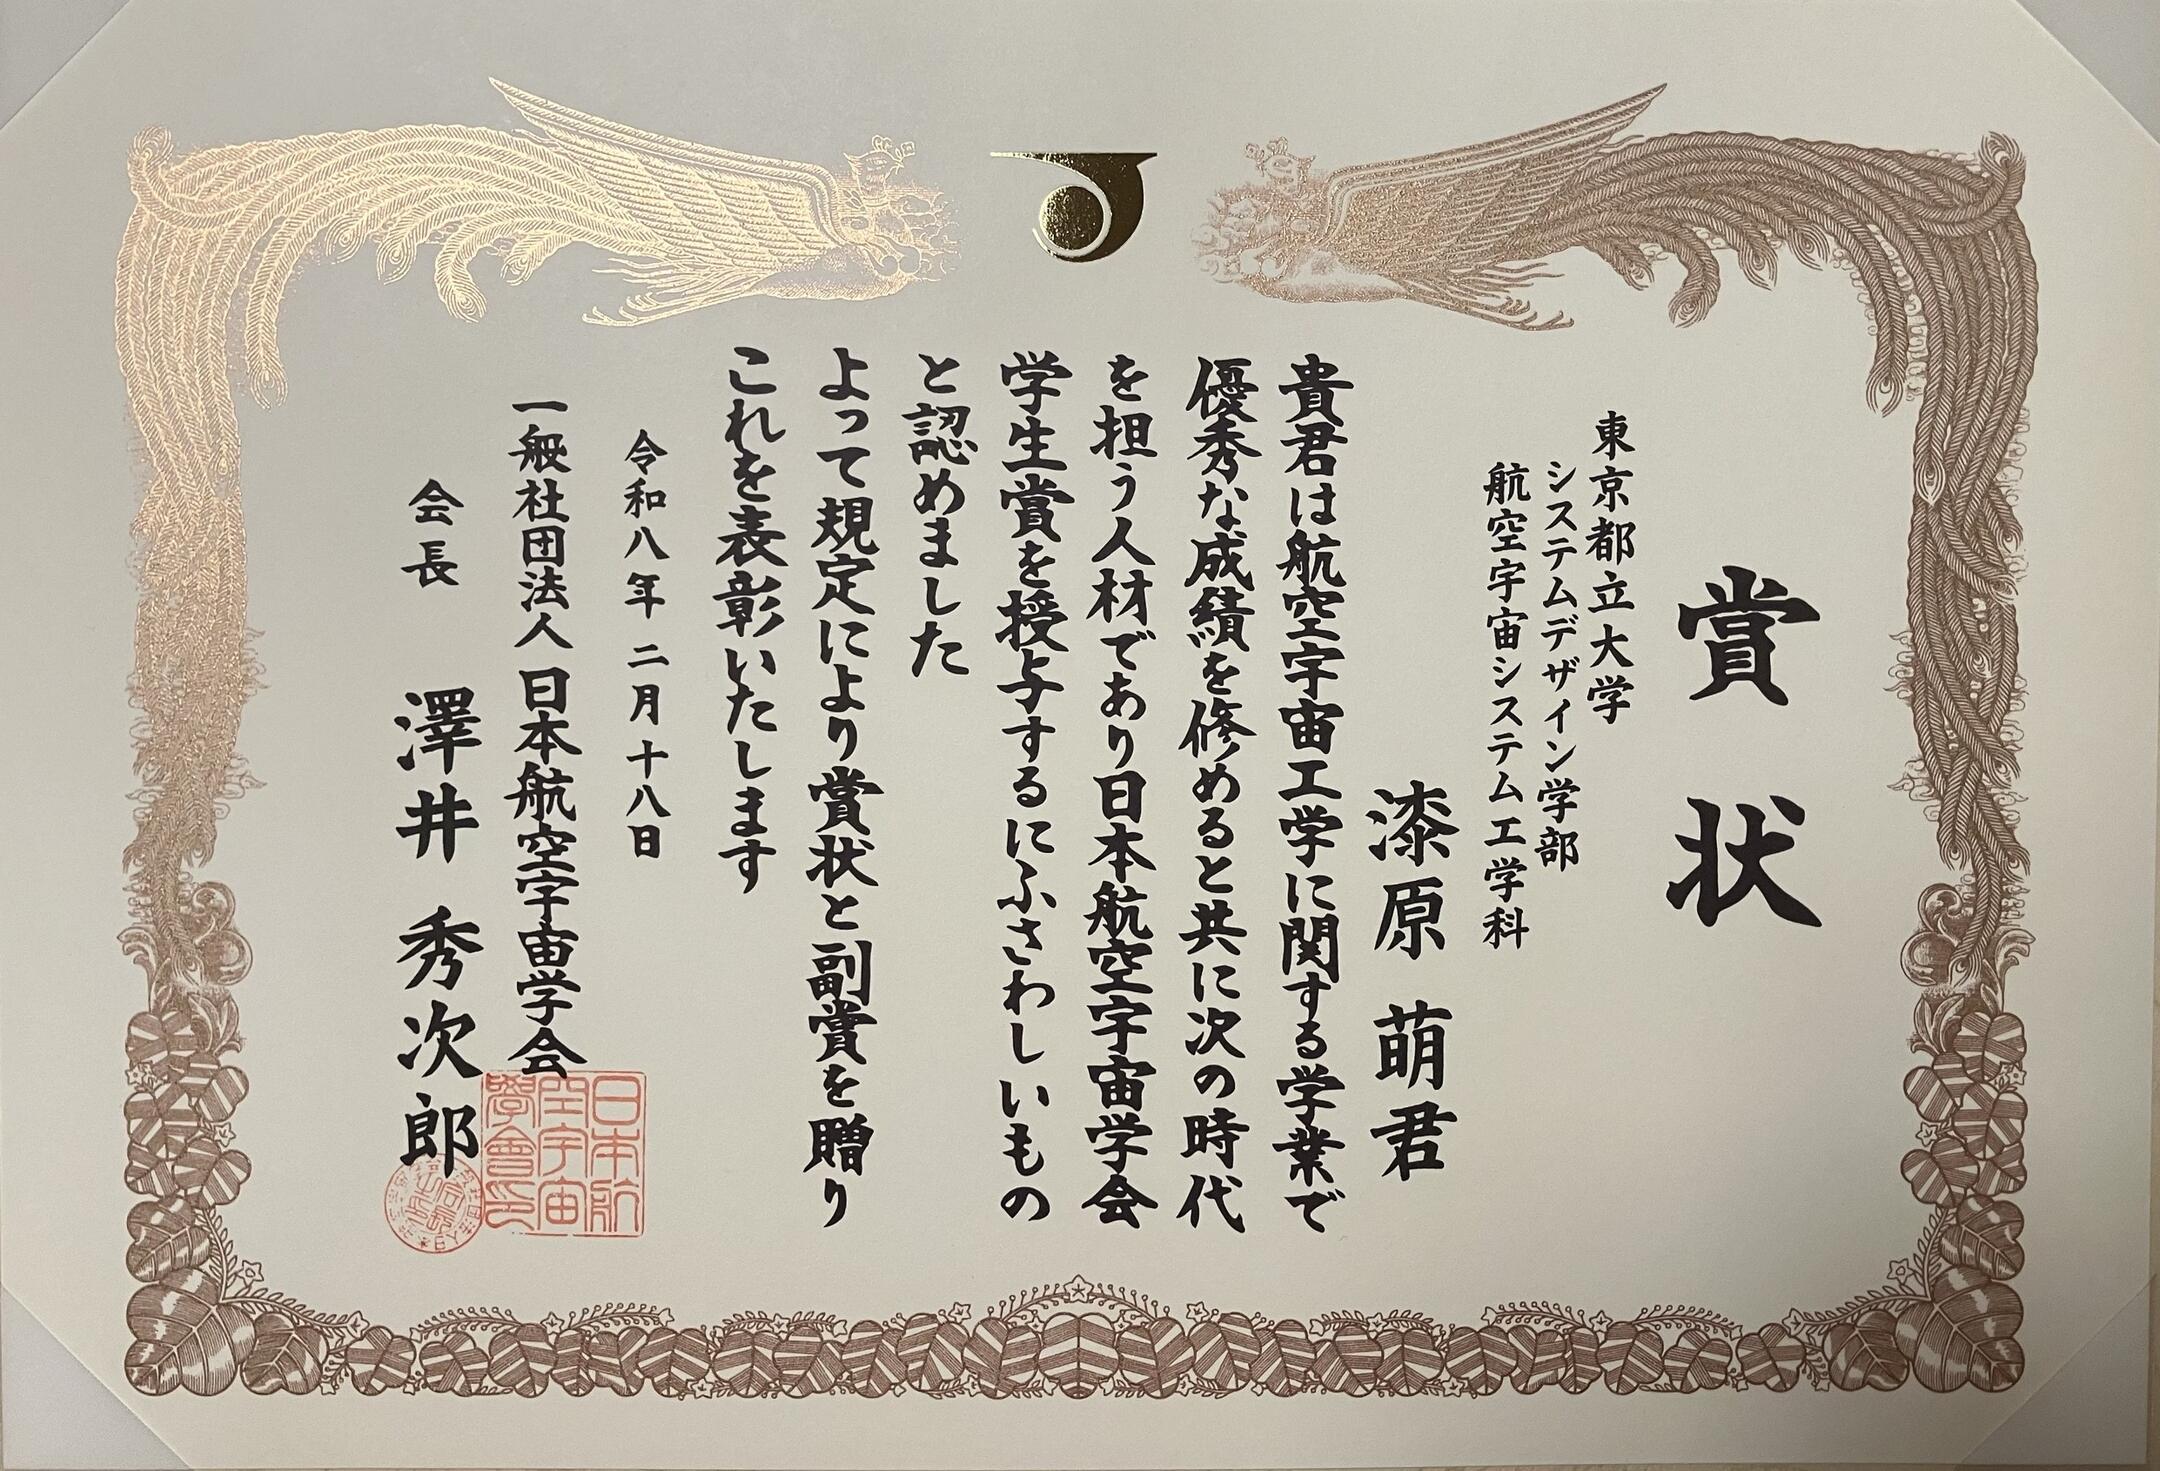 賞状
東京都立大学
システムデザイン学部
航空宇宙システム工学科
漆原 萌君
貴君は航空宇宙工学に関する学業で
優秀な成績を修めると共に次の時代
を担う人材であり日本航空宇宙学会
学生賞を授与するにふさわしいもの
と認めました
よって規定により賞状と副賞を贈り
これを表彰いたします
令和八年 二月 十八日
一般社団法人 日本航空宇宙学会
会長 澤井 秀次郎
日本航
空宇宙
學會印